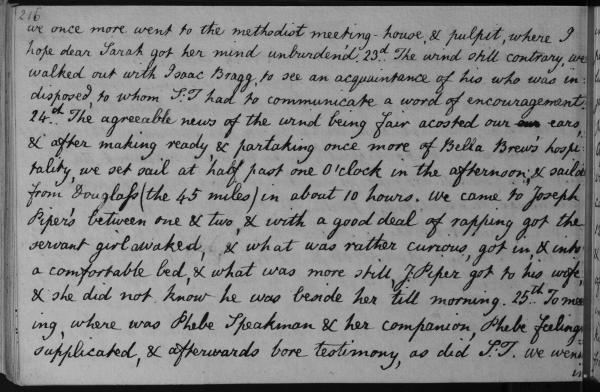 216
we once more went to the methodist meeting-house, & pulpit, where I
hope dear Sarah got her mind unburden'd. 23.d The wind still contrary, we
walked out with Isaac Bragg, to see an acquaintance of his who was in=
disposed, to whom S.T had to communicate a word of encouragement.
24.th The agreeable news of the wind being fair acosted our our ears,
& after making ready & partaking once more of Bella Brew's hospi=
tality, we set sail at half past one O'clock in the afternoon, & saild
from Douglass (the 45 miles) in about 10 hours. we came to Joseph
Piper's between one & two, & with a good deal of rapping got the
servant girl awaked, & what was rather curious, got in, & into
a comfortable bed, & what was more still, J. Piper got to his wife,
& she did not know he was beside her till morning. 25.th To mee
ing, where was Phebe Speakman & her companion, Phebe feeling
supplicated, & afterwards bore testimony, as did S.T. we went
in